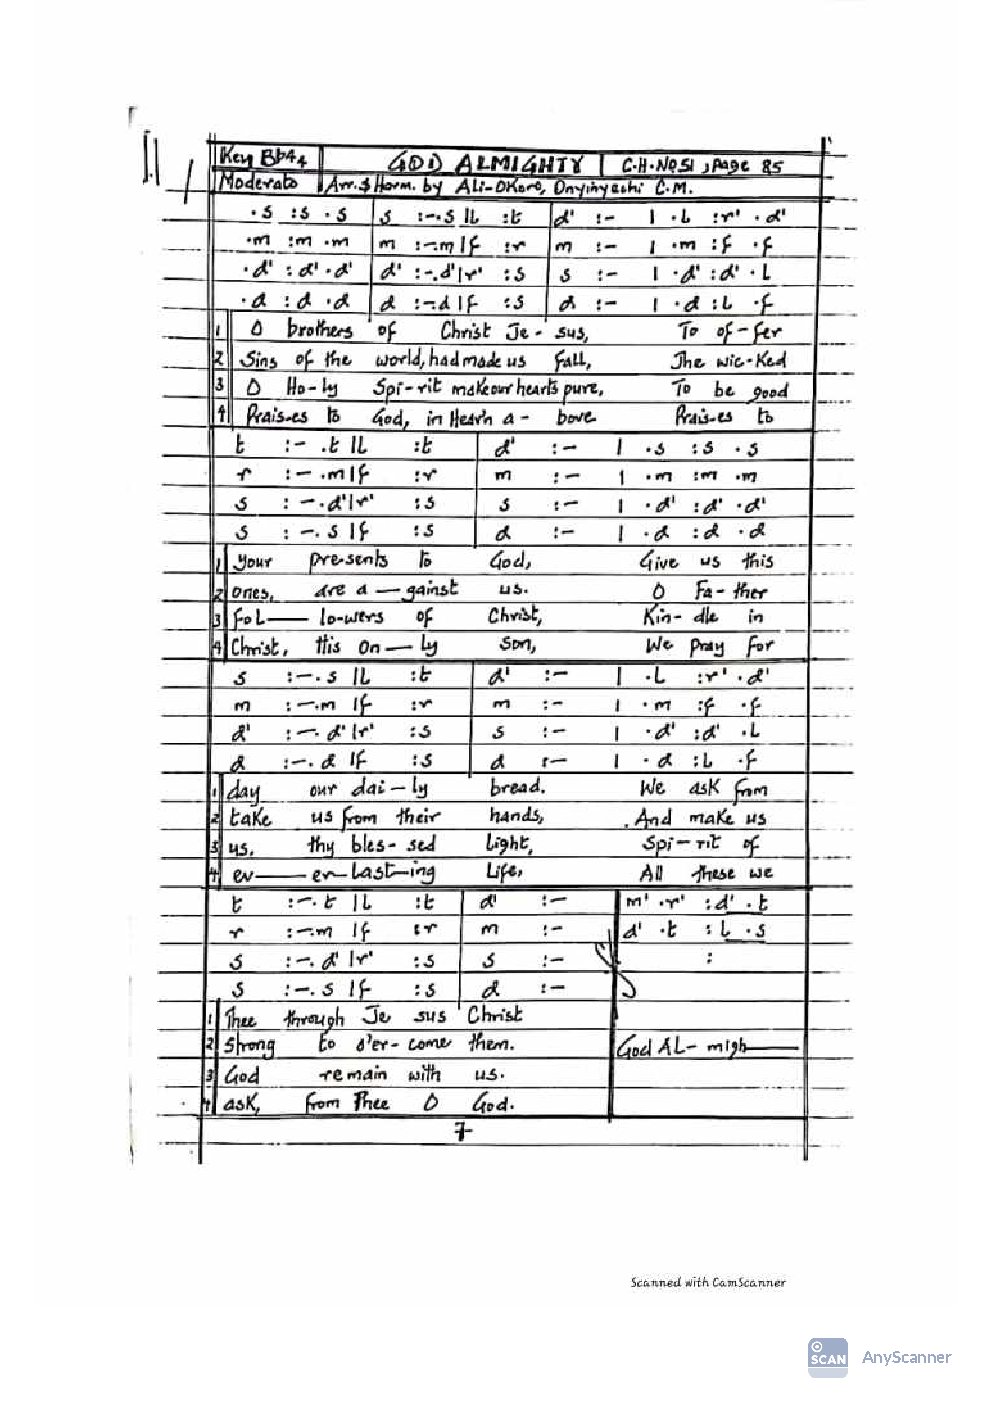 Key Bb 4/4 GOD ALMIGHTY C.H. No 51, page 85
Moderato Arr. & Harm. by Ali-Okoro, Onyinyechi C.M.
.s :s .s | s :-.s |L :t | d' :- | .L :r' .d'
.m :m .m | m :-.m |f :r | m :- | .m :f .f
.d' :d' .d' | d' :-.d' |r' :s | s :- | .d' :d' .L
.d :d .d | d :-.d |f :s | d :- | .d :L .f
1 O brothers of Christ Je-sus, To of-fer
2 Sins of the world, had made us fall, The wic-ked
3 O Ho-ly Spi-rit make our hearts pure, To be good
4 Prais-es to God, in Heav'n a-bove Prais-es to
t :-.t |L :t | d' :- | .s :s .s
r :-.m |f :r | m :- | .m :m .m
s :-.d' |r' :s | s :- | .d' :d' .d'
s :-.s |f :s | d :- | .d :d .d
1 your pre-sents to God, Give us this
2 ones, are a-gainst us. O Fa-ther
3 FoL-lo-wers of Christ, Kin-dle in
4 Christ, His on-ly Son, We pray for
s :-.s |L :t | d' :- | .L :r' .d'
m :-.m |f :r | m :- | .m :f .f
d' :-.d' |r' :s | s :- | .d' :d' .L
d :-.d |f :s | d :- | .d :L .f
1 day our dai-ly bread. We ask from
2 take us from their hands, And make us
3 us, thy bles-sed Light, Spi-rit of
4 ev-er-Last-ing Life, All these we
t :-.t |L :t | d' :- | m' .r' :d' .t
r :-.m |f :r | m :- | d' .t :L .s
s :-.d' |r' :s | s :- | :
s :-.s |f :s | d :-
1 Thee through Je sus Christ
2 strong to o'er-come them. God AL-migh
3 God remain with us.
4 ask, from Thee O God.
7
Scanned with CamScanner
SCAN AnyScanner